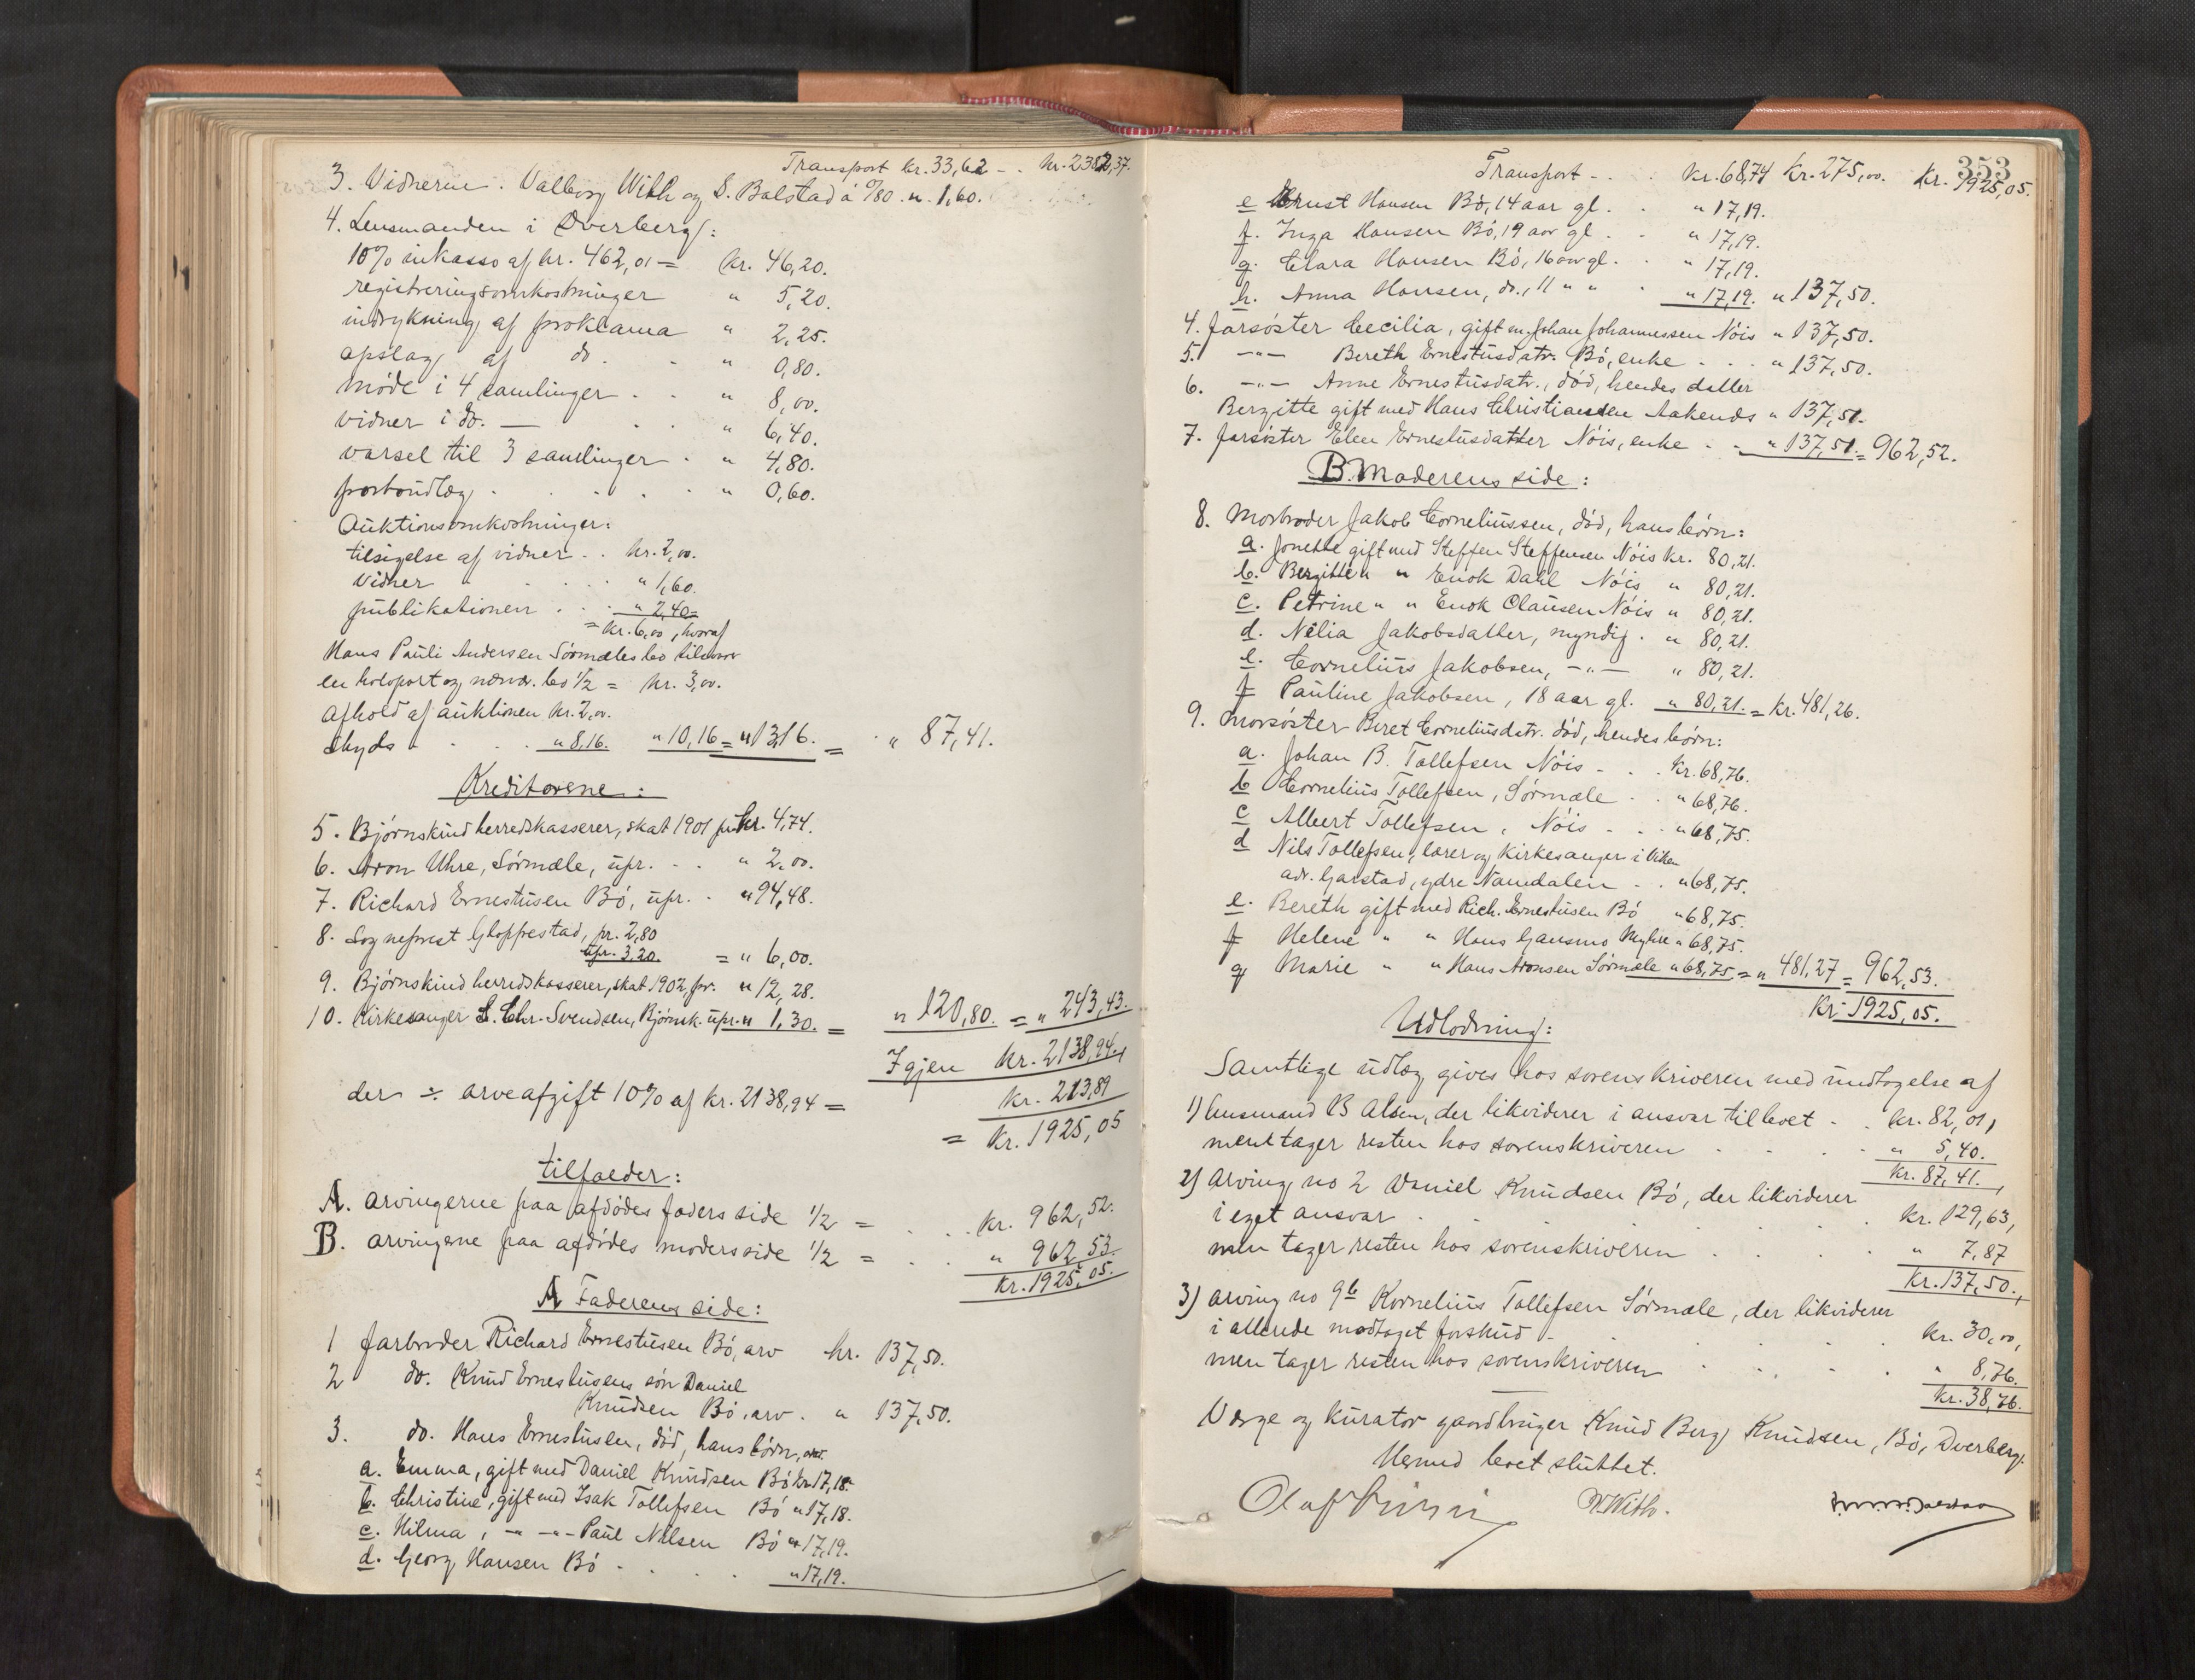 Transport kr. 33,62 - . kr. 2382,37.
3. Vidnerne. Valborg With og S. Balstad á 0/80 . „ 1,60.
4. Lensmanden i Dverberg:
10% inkasso af kr. 462,01 = kr. 46,20.
registreringsomkostninger „ 5,20.
indrykning af proklama „ 2,25.
opslag af do. . „ 0,80.
møde i 4 samlinger . . „ 8,00.
vidner i do. — . . „ 6,40.
varsel til 3 samlinger . „ 4,80.
portoudlæg . . . . . „ 0,60.
Auktionsomkostninger:
tilsigelse af vidner . . kr. 2,00.
vidner . . . . „ 1,60.
publikationen . . . „ 2,40 =
= kr. 6,00, hvoraf
Hans Pauli Andersen Sørmæles bo tilsvarer
en halvpart og nærvær. bo 1/2 = kr. 3,00.
Afhold af auktionen kr. 2,00.
skyds . . . . „ 8,16. „ 10,16 = „ 13,16. = . „ 87,41.
Kreditorene:
5. Bjørnskind herredskasserer, skat 1901 pr. kr. 4,74.
6. Aron Uhre, Sørmæle, upr. . . „ 2,00.
7. Richard Ernestusen Bø, upr. . „ 94,48.
8. Sogneprest Gloppestad, pr. 2,80
upr. 3,20. = „ 6,00.
9. Bjørnskind herredskasserer, skat 1902, pr. „ 12,28.
10. Kirkesanger S. Chr. Svendsen, Bjørnsk. upr. „ 1,30. = „ 120,80. = „ 243,43.
Igjen kr. 2138,94.
der ÷ arveafgift 10% af kr. 2138,94 = kr. 213,89
= kr. 1925,05
tilfalder:
A. arvingerne paa afdødes faders side 1/2 = . . kr. 962,52.
B. arvingene paa afdødes moders side 1/2 = . . „ 962,53.
kr. 1925,05.
A Faderens side:
1 farbroder Richard Ernestusen Bø, arv kr. 137,50.
2 do. Knud Ernestusens søn Daniel
Knudsen Bø, arv . „ 137,50.
3. do. Hans Ernestusen, død, hans børn, arv.
a. Emma, gift med Daniel Knudsen Bø kr 17,18.
b. Christine, gift med Isak Tollefsen Bø „ 17,18.
c. Hilma, -„- -„- Paul Nilsen Bø „ 17,19.
d. Georg Hansen Bø . . . . „ 17,19.
353
Transport - . . kr. 68,74 kr. 275,00. kr. 1925,05.
e Ernst Hansen Bø, 14 aar gl. . „ 17,19.
f. Inga Hansen Bø, 19 aar gl . . „ 17,19.
g. Clara Hansen Bø, 16 aar gl. . „ 17,19.
h. Anna Hansen, do., 11 „ „ . „ 17,19. „ 137,50.
4. farsøster Cecilia, gift m. Johan Johannessen Nøis „ 137,50.
5. -„- Bereth Ernestusdatr. Bø, enke . . . „ 137,50.
6. -„- Anne Ernestusdatr., død, hendes datter
Bergitte gift med Hans Christiansen Aakenes „ 137,51.
7. farsøster Elen Ernestusdatter Nøis, enke . . „ 137,51. = 962,52.
B. Moderens side:
8. Morbroder Jakob Corneliussen, død, hans børn:
a. Jonette gift med Steffen Steffensen Nøis kr. 80,21.
b. Bergitte „ „ Enok Dahl Nøis „ 80,21.
c. Petrine „ „ Enok Olausen Nøis „ 80,21.
d. Nilia Jakobsdatter, myndig . „ 80,21.
e. Cornelius Jakobsen, -„- „ 80,21.
f Pauline Jakobsen, 18 aar gl. „ 80,21. = kr. 481,26.
9. Morsøster Beret Corneliusdatr. død, hendes børn:
a. Johan B. Tollefsen Nøis - . . kr. 68,76.
b Cornelius Tollefsen, Sørmæle . . „ 68,76.
c Albert Tollefsen, Nøis - . . „ 68,75.
d Nils Tollefsen, lærer og kirkesanger i Viken
adr. Garstad, ydre Namdalen . . „ 68,75.
e. Bereth gift med Rich. Ernestusen Bø „ 68,75.
f Helene „ „ Hans Gausmo Myhre „ 68,75.
g Marie „ „ Hans Aronsen Sørmæle „ 68,75 = „ 481,27 = 962,53.
kr. 1925,05.
Udlodning:
Samtlige udlæg gives hos sorenskriveren med undtagelse af
1) lensmand B Alsen, der likviderer i ansvar til boet . . kr. 82,01,
men tager resten hos sorenskriveren . . . . „ 5,40.
kr. 87,41.,
2) Arving no 2 Daniel Knudsen Bø, der likviderer
i eget ansvar . . . . . . . kr. 129,63,
men tager resten hos sorenskriveren . . . . „ 7,87
kr. 137,50.,
3) arving no 9b Kornelius Tollefsen Sørmæle, der likviderer
i allerede modtaget forskud - . . . . kr. 30,00,
men tager resten hos sorenskriveren . . . . „ 8,76.
kr. 38,76.
Værge og kurator gaardbruger Knud Berg Knudsen, Bø, Dverberg.
Hermed boet sluttet.
V. With. Balstad